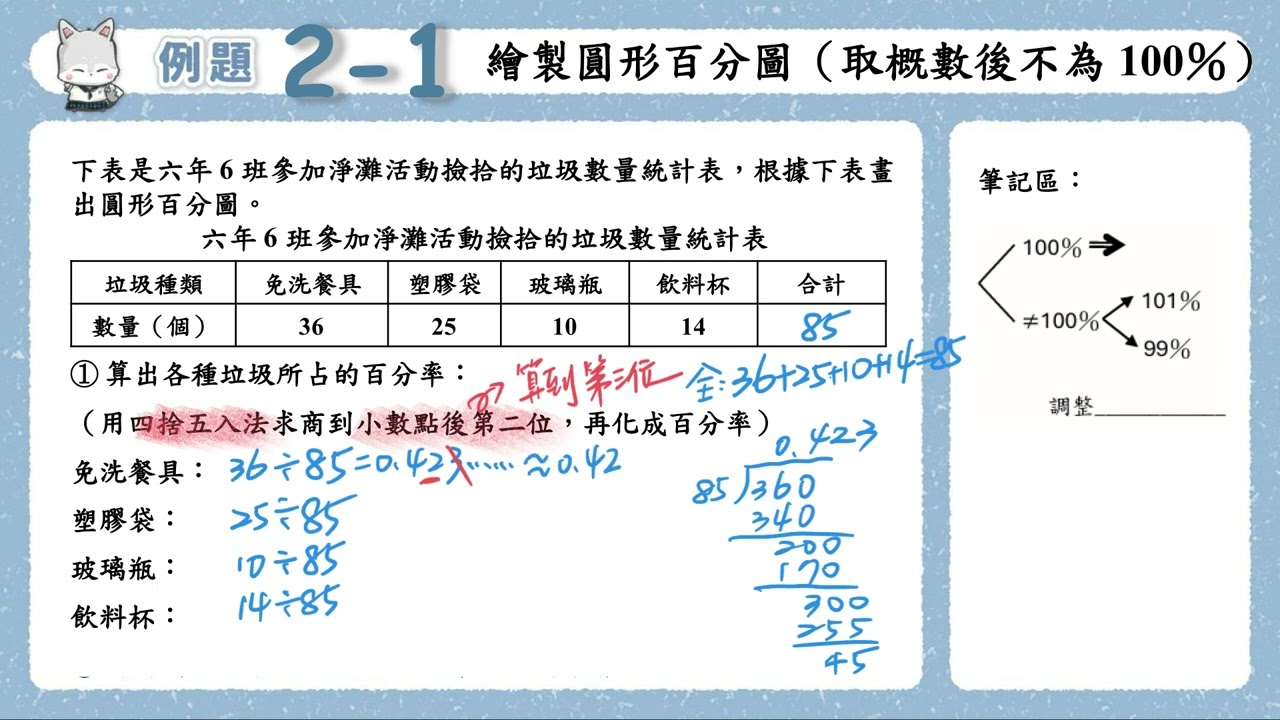 例題 2-1 繪製圓形百分圖（取概數後不為 100%）
下表是六年 6 班參加淨灘活動撿拾的垃圾數量統計表，根據下表畫
出圓形百分圖。
六年 6 班參加淨灘活動撿拾的垃圾數量統計表
垃圾種類 免洗餐具 塑膠袋 玻璃瓶 飲料杯 合計
數量（個） 36 25 10 14 85
全:36+25+10+14=85
① 算出各種垃圾所占的百分率：
算到第三位
（用四捨五入法求商到小數點後第二位，再化成百分率）
免洗餐具： 36÷85=0.423…… ≈0.42
塑膠袋： 25÷85
玻璃瓶： 10÷85
飲料杯： 14÷85
0.423
85)360
340
200
170
300
255
45
筆記區：
100%
≠100%
101%
99%
調整__________